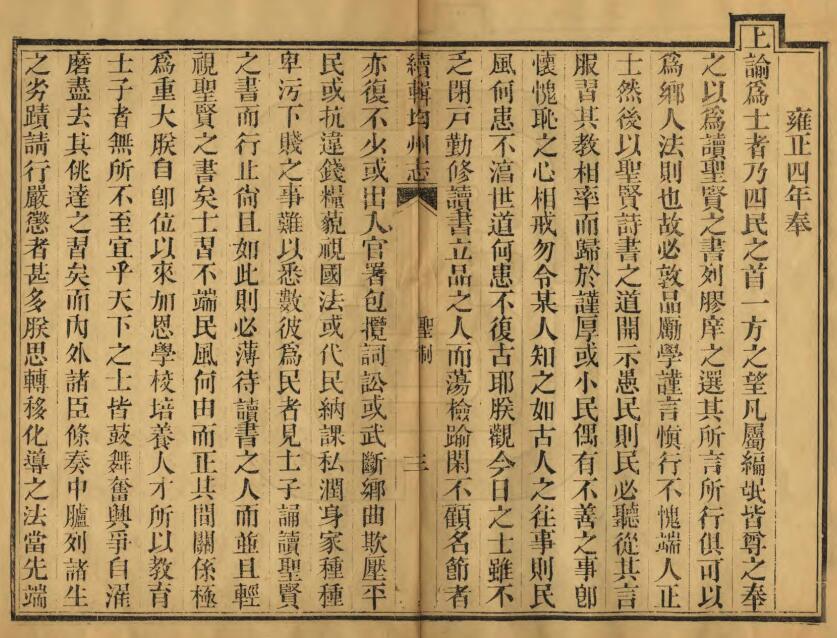 雍正四年奉
上諭爲士者乃四民之首一方之望凡屬編氓皆尊之奉
之以爲讀聖賢之書列膠庠之選其所言所行俱可以
爲鄉人法則也故必敦品勵學謹言愼行不愧端人正
士然後以聖賢詩書之道開示愚民則民必聽從其言
服習其教相率而歸於謹厚或小民偶有不善之事卽
懷愧恥之心相戒勿令某人知之如古人之往事則民
風何患不湻世道何患不復古耶朕觀今日之士雖不
乏閉戸勤修讀書立品之人而蕩檢踰閑不顧名節者
續輯均州志
聖制
三
亦復不少或出入官署包攬詞訟或武斷鄉曲欺壓平
民或抗違錢糧藐視國法或代民納課私潤身家種種
卑污下賤之事難以悉數彼爲民者見士子誦讀聖賢
之書而行止尙且如此則必薄待讀書之人而並且輕
視聖賢之書矣士習不端民風何由而正其間關係極
爲重大朕自卽位以來加恩學校培養人才所以教育
士子者無所不至宜乎天下之士皆鼓舞奮興爭自濯
磨盡去其佻達之習矣而内外諸臣條奏中臚列諸生
之劣蹟請行嚴懲者甚多朕思轉移化導之法當先端